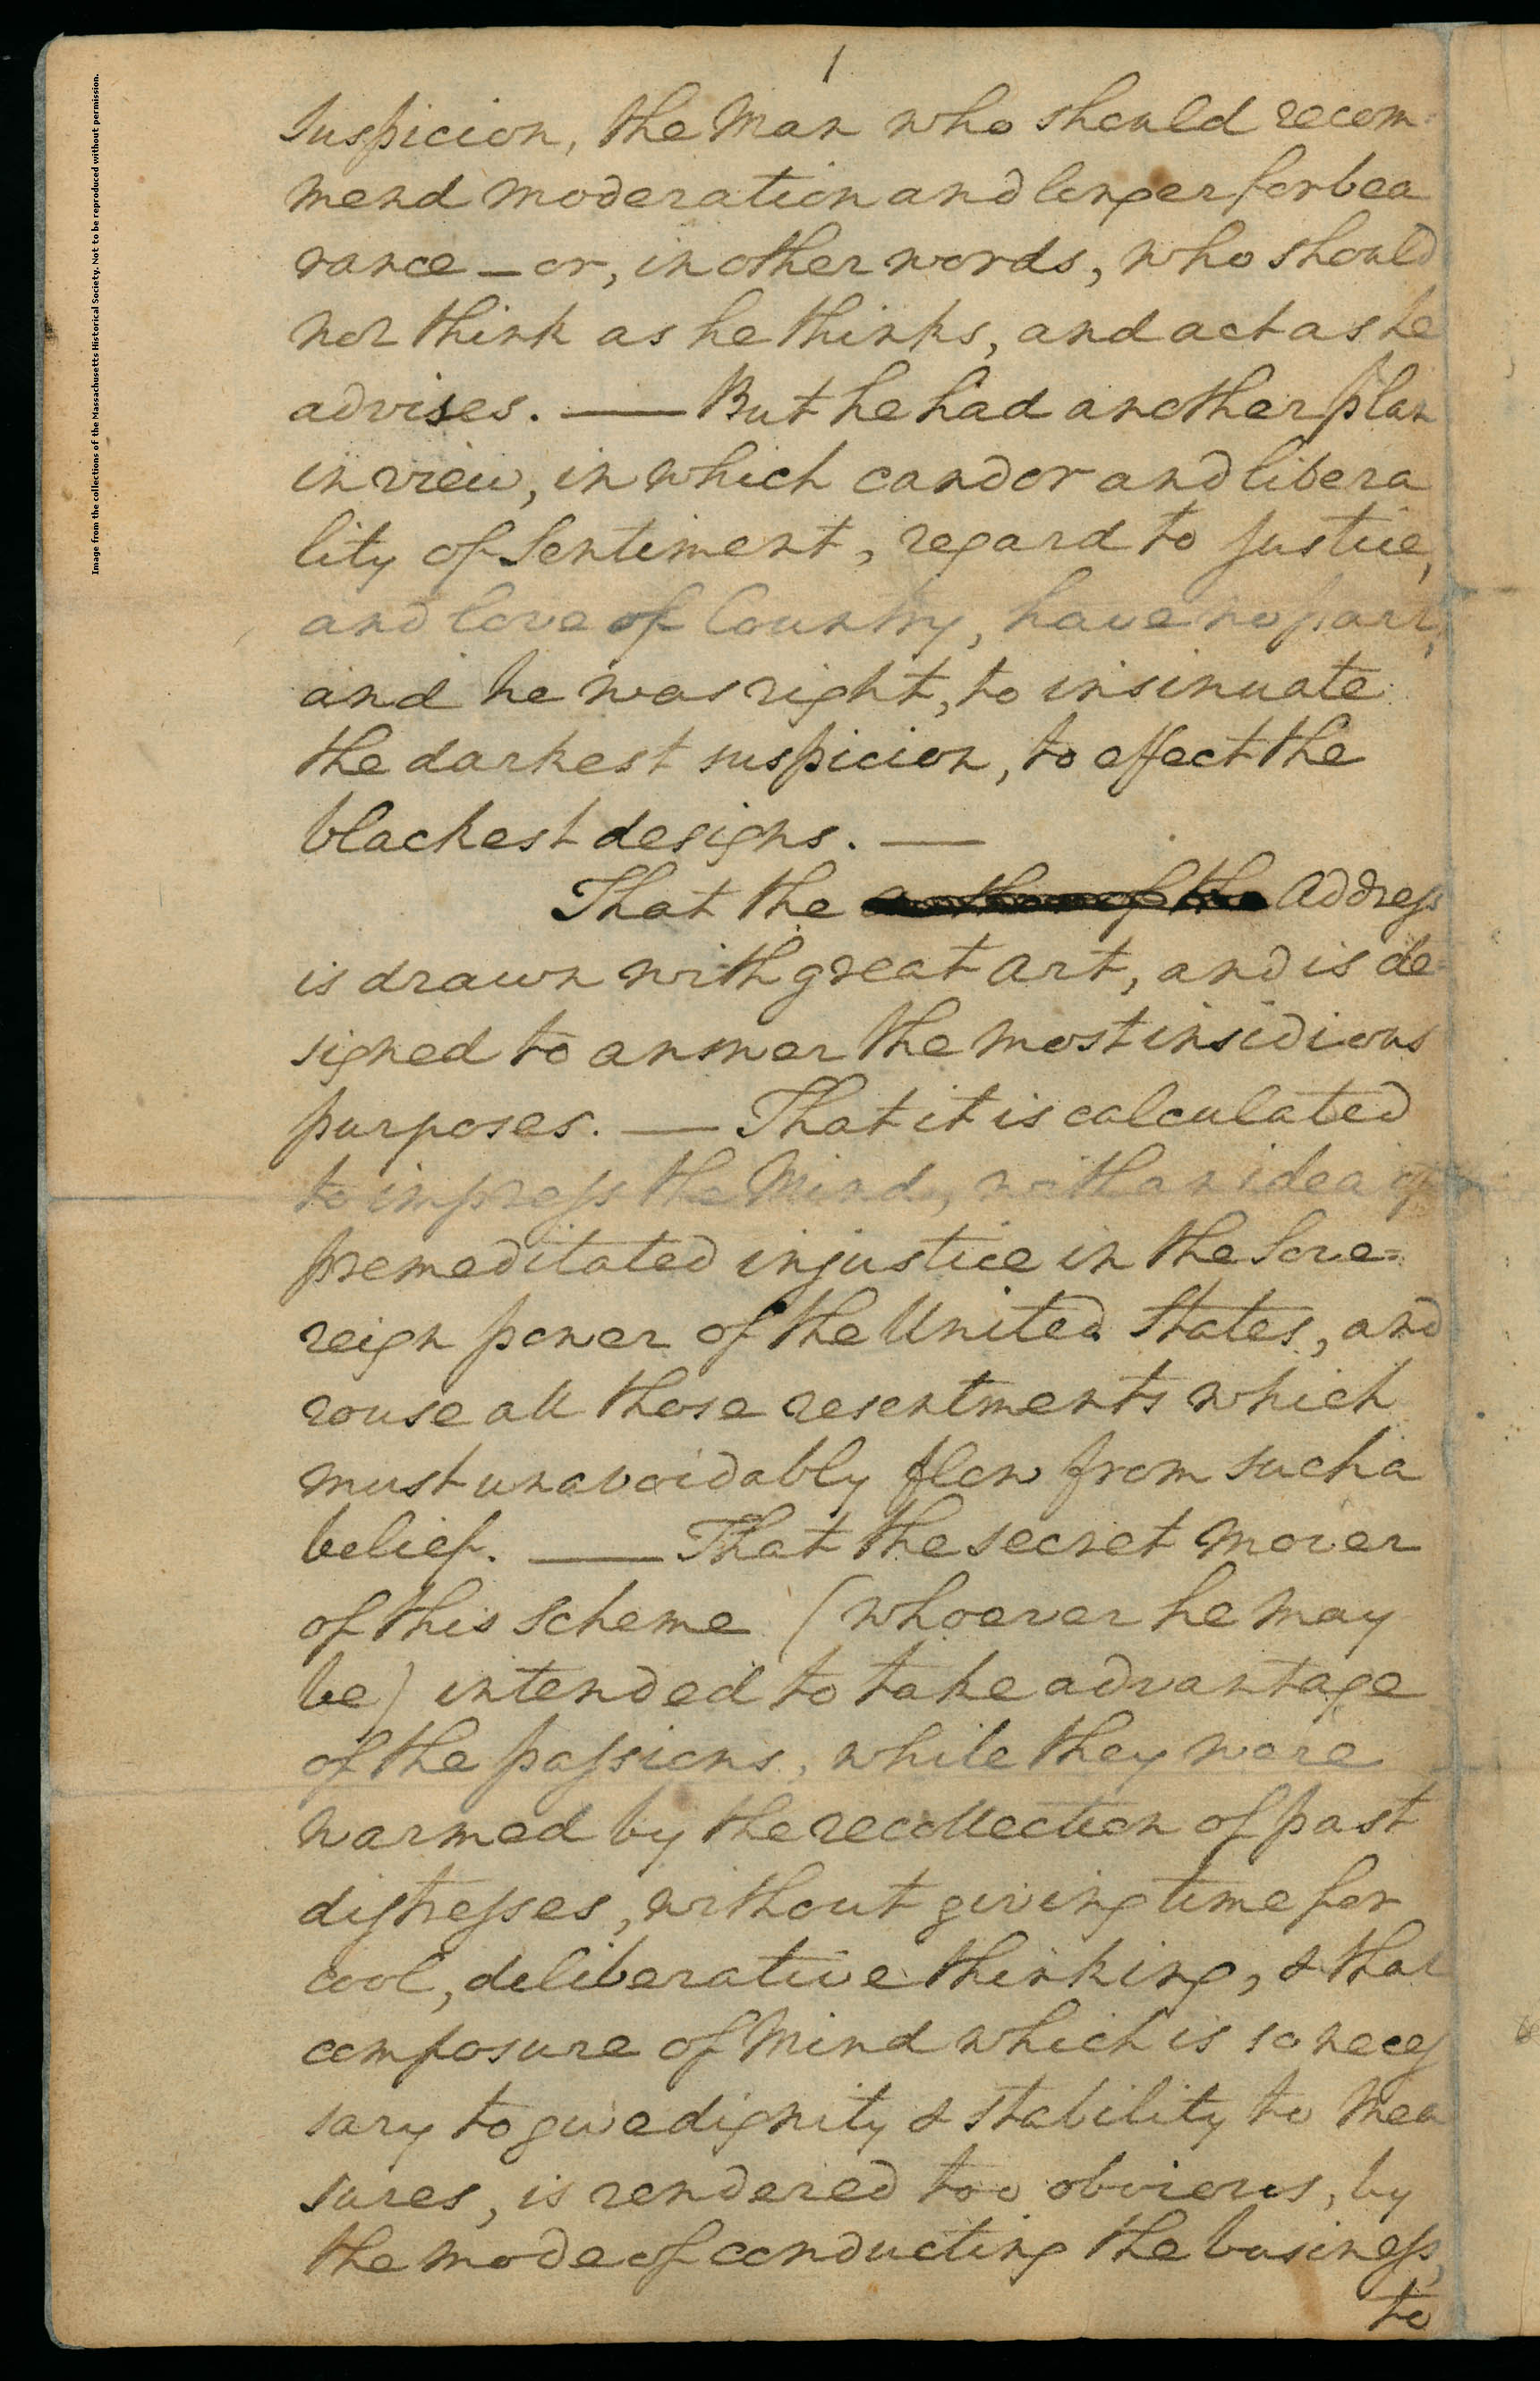 1
Suspicion, the Man who should recom=
mend moderation and longer forbea
rance – or, in other words, who should
not think as he thinks, and act as he
advises. —— But he had another plan
in view, in which candor and libera
lity of Sentiment, regard to justice,
and love of Country, have no part,
and he was right, to insinuate
the darkest suspicion, to effect the
blackest designs. —
That the author of the Address
is drawn with great art, and is de=
signed to answer the most insidious
purposes. — That it is calculated
to impress the Mind, with an idea of
premeditated injustice in the Sove=
reign power of the United States, and
rouse all those resentments which
must unavoidably flow from such a
belief. —— That the secret mover
of this Scheme (whoever he may
be) intended to take advantage
of the passions, while they were
warmed by the recollection of past
distresses, without giving time for
cool, deliberative thinking, & that
composure of Mind which is so neces
sary to give dignity & stability to Mea
sures, is rendered too obvious, by
the mode of conducting the business,
to
Image from the collections of the Massachusetts Historical Society. Not to be reproduced without permission.